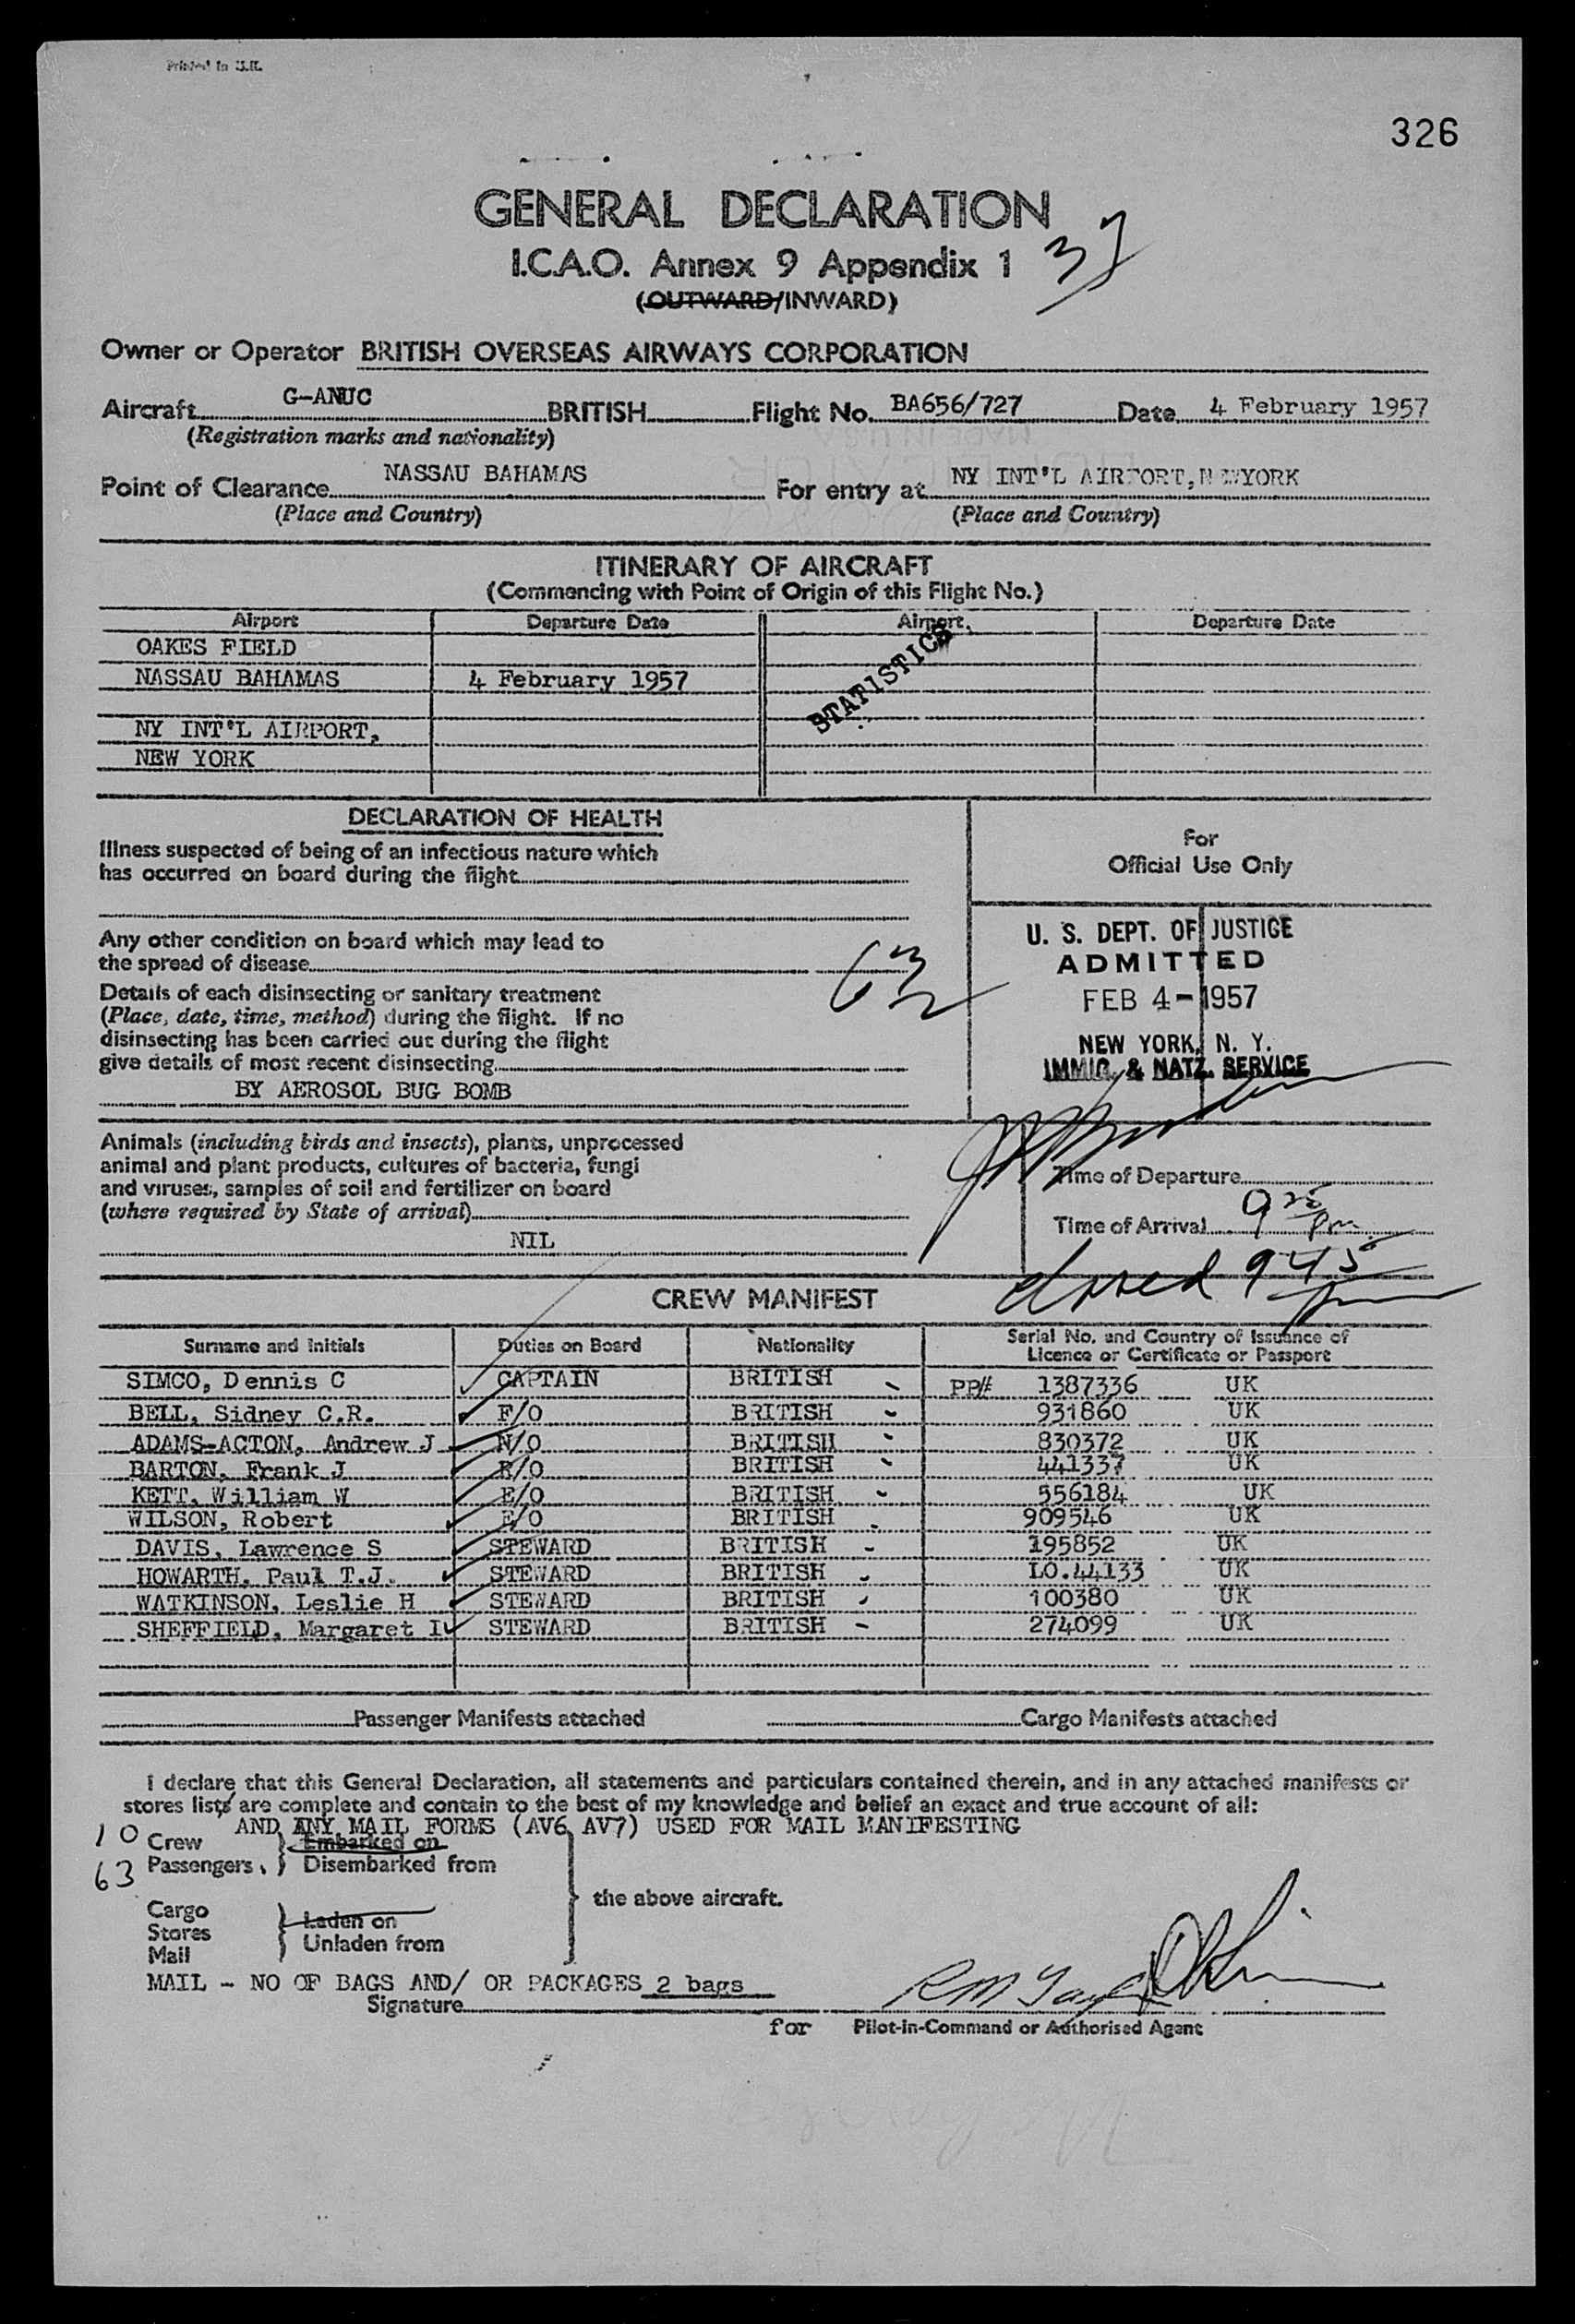 Printed in U.K.
326
GENERAL DECLARATION
I.C.A.O. Annex 9 Appendix 1
37
(OUTWARD/INWARD)
Owner or Operator BRITISH OVERSEAS AIRWAYS CORPORATION
Aircraft G-ANUC BRITISH Flight No. BA656/727 Date 4 February 1957
(Registration marks and nationality)
Point of Clearance NASSAU BAHAMAS For entry at NY INT'L AIRPORT, NEWYORK
(Place and Country) (Place and Country)
ITINERARY OF AIRCRAFT
(Commencing with Point of Origin of this Flight No.)
Airport Departure Date Airport Departure Date
OAKES FIELD
NASSAU BAHAMAS 4 February 1957
STATISTICS
NY INT'L AIRPORT,
NEW YORK
DECLARATION OF HEALTH
Illness suspected of being of an infectious nature which
has occurred on board during the flight
For
Official Use Only
Any other condition on board which may lead to
the spread of disease
63
Details of each disinsecting or sanitary treatment
(Place, date, time, method) during the flight. If no
disinsecting has been carried out during the flight
give details of most recent disinsecting
BY AEROSOL BUG BOMB
U. S. DEPT. OF JUSTICE
ADMITTED
FEB 4-1957
NEW YORK, N. Y.
IMMIG. & NATZ. SERVICE
Animals (including birds and insects), plants, unprocessed
animal and plant products, cultures of bacteria, fungi
and viruses, samples of soil and fertilizer on board
(where required by State of arrival)
NIL
Time of Departure
Time of Arrival 9 25 pm
closed 9 45 pm
CREW MANIFEST
Surname and Initials Duties on Board Nationality Serial No. and Country of Issuance of
Licence or Certificate or Passport
SIMCO, Dennis C CAPTAIN BRITISH PP# 1387336 UK
BELL, Sidney C.R. F/O BRITISH 931860 UK
ADAMS-ACTON, Andrew J N/O BRITISH 830372 UK
BARTON, Frank J R/O BRITISH 441337 UK
KETT, William W E/O BRITISH 556184 UK
WILSON, Robert E/O BRITISH 909546 UK
DAVIS, Lawrence S STEWARD BRITISH 195852 UK
HOWARTH, Paul T.J. STEWARD BRITISH LO.44133 UK
WATKINSON, Leslie H STEWARD BRITISH 100380 UK
SHEFFIELD, Margaret I STEWARD BRITISH 274099 UK
Passenger Manifests attached Cargo Manifests attached
I declare that this General Declaration, all statements and particulars contained therein, and in any attached manifests or
stores lists are complete and contain to the best of my knowledge and belief an exact and true account of all:
AND ANY MAIL FORMS (AV6, AV7) USED FOR MAIL MANIFESTING
10 Crew Embarked on
63 Passengers Disembarked from
the above aircraft.
Cargo
Stores Laden on
Mail Unladen from
MAIL - NO OF BAGS AND/ OR PACKAGES 2 bags
Signature
for Pilot-in-Command or Authorised Agent